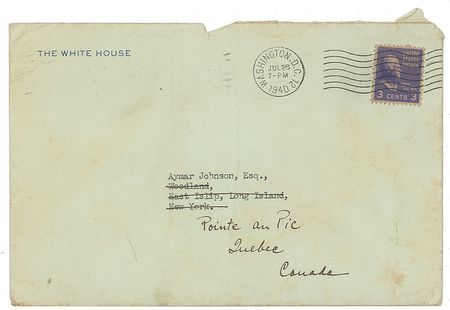 THE WHITE HOUSE
WASHINGTON, D.C. 12
JUL 26
7-PM
1940
UNITED
STATES
POSTAGE
3 CENTS 3
Aymar Johnson, Esq.,
Woodland,
East Islip, Long Island,
New York.
Pointe au Pic
Quebec
Canada